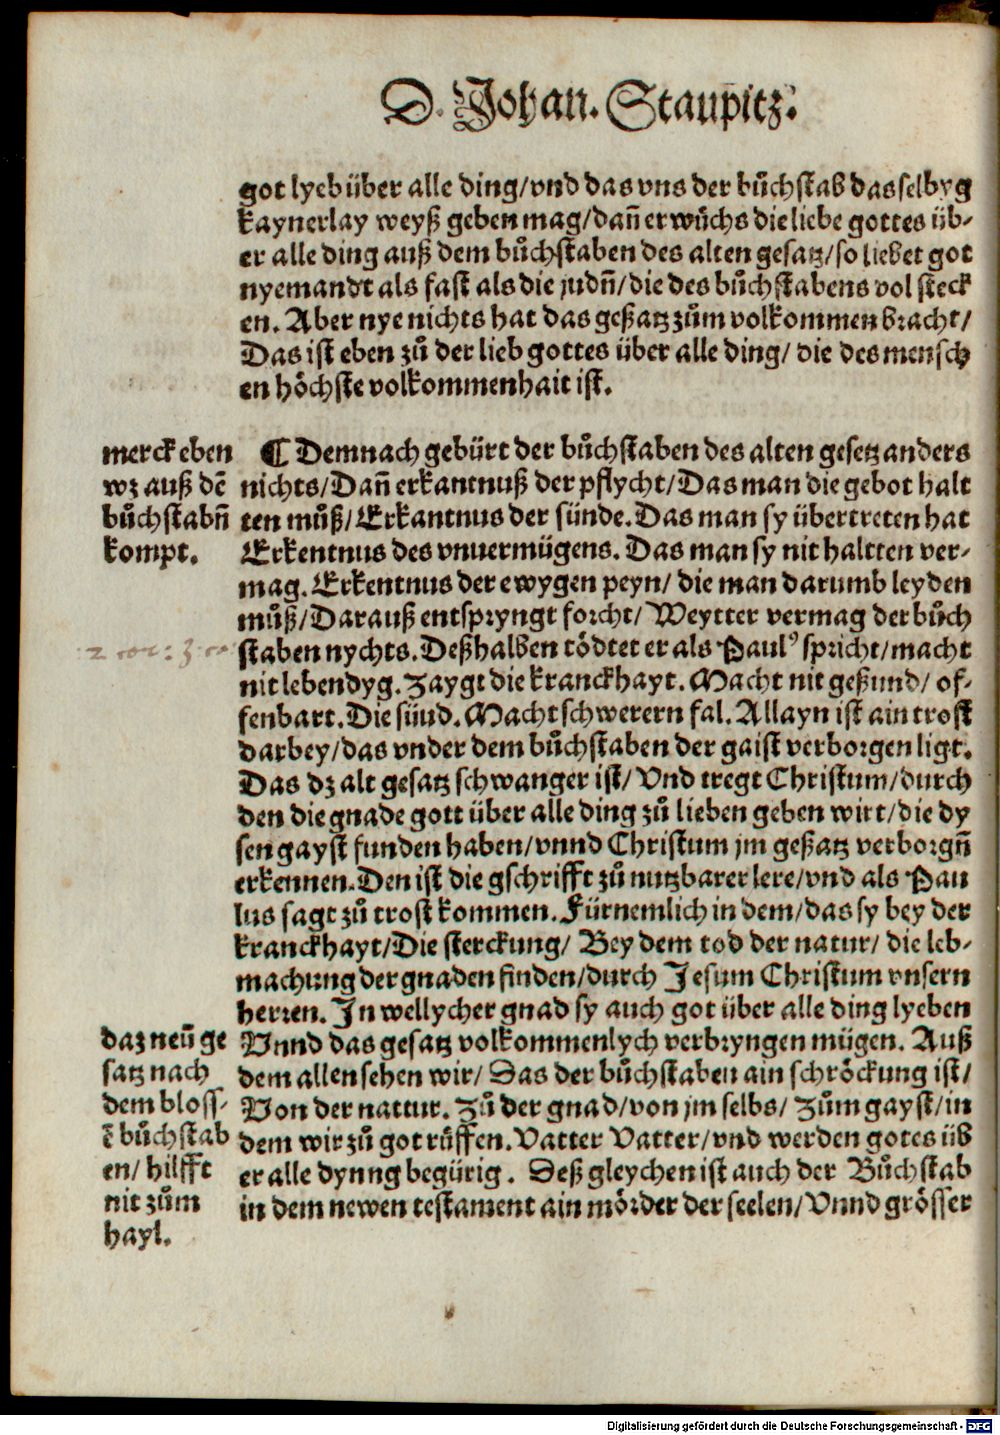 D. Johan. Staupitz.
got lyeb über alle ding/vnd das vns der bůchstab dasselbyg
kaynerlay weyß geben mag/dañ erwůchs die liebe gottes üb-
er alle ding auß dem bůchstaben des alten gesatz/so liebet got
nyemandt als fast als die judñ/die des bůchstabens vol steck
en. Aber nye nichts hat das geßatz zům volkommen bracht/
Das ist eben zů der lieb gottes über alle ding/ die des mensch
en höchste volkommenhait ist.
merck eben
wz auß dē
bůchstabñ
kompt.
¶ Demnach gebürt der bůchstaben des alten gesetz anders
nichts/Dañ erkantnuß der pflycht/Das man die gebot halt
ten můß/Erkantnus der sünde. Das man sy übertreten hat
Erkentnus des vnuermügens. Das man sy nit haltten ver-
mag. Erkentnus der ewygen peyn/ die man darumb leyden
můß/Darauß entspryngt forcht/ Weytter vermag der bůch
staben nychts. Deßhalben tödtet er als Paulꝰ spricht/macht
nit lebendyg. Zaygt die kranckhayt. Macht nit geßund/ of-
fenbart. Die sünd. Macht schwerern fal. Allayn ist ain trost
darbey/das vnder dem bůchstaben der gaist verborgen ligt.
Das dz alt gesatz schwanger ist/ Vnd tregt Christum/durch
den die gnade gott über alle ding zů lieben geben wirt/die dy
sen gayst funden haben/vnnd Christum jm geßatz verborgñ
erkennen. Den ist die gschrifft zů nutzbarer lere/vnd als Pau
lus sagt zů trost kommen. Fürnemlich in dem/das sy bey der
kranckhayt/Die sterckung/ Bey dem tod der natur/ die leb-
machung der gnaden finden/durch Jesum Christum vnsern
herren. In wellycher gnad sy auch got über alle ding lyeben
Vnnd das gesatz volkommenlych verbryngen mügen. Auß
dem allen sehen wir/ Das der bůchstaben ain schröckung ist/
Von der nattur. Zů der gnad/von jm selbs/ Zům gayst/in
dem wir zů got růffen. Vatter Vatter/vnd werden gotes üb
er alle dynng begürig. Deß gleychen ist auch der Bůchstab
in dem newen testament ain mörder der seelen/ Vnnd grösser
daz neũ ge
satz nach
dem bloss-
ē bůchstab
en/ hilfft
nit zům
hayl.
Digitalisierung gefördert durch die Deutsche Forschungsgemeinschaft - DFG